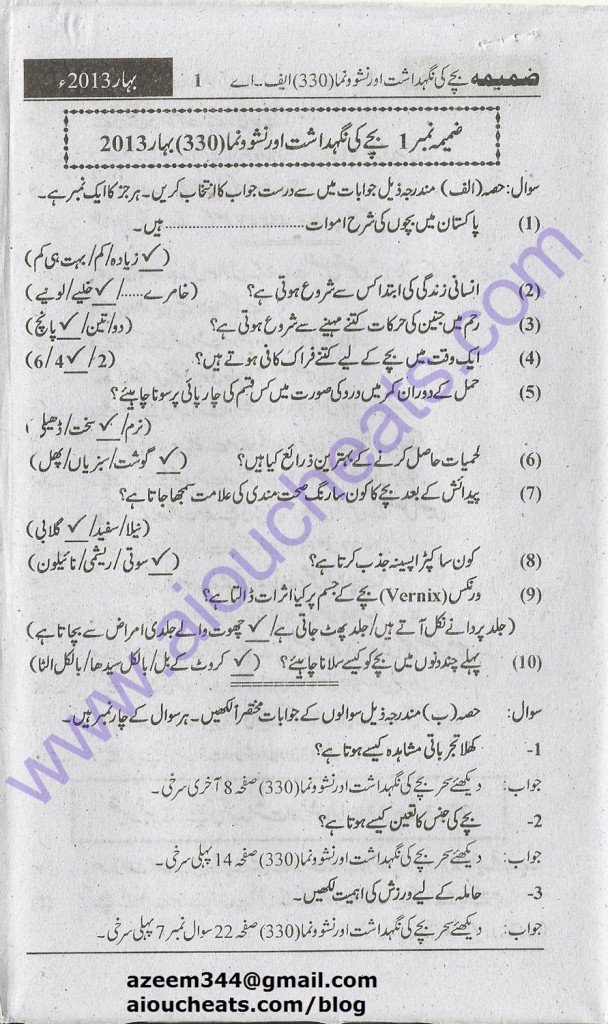 ضمیمہ بچے کی نگہداشت اور نشوونما (330) ایف۔اے 1 بہار 2013ء
ضمیمہ نمبر 1 بچے کی نگہداشت اور نشوونما (330) بہار 2013
سوال: حصہ (الف) مندرجہ ذیل جوابات میں سے درست جواب کا انتخاب کریں۔ ہر جز کا ایک نمبر ہے۔
(1) پاکستان میں بچوں کی شرح اموات ........................ ہیں۔
(✓ زیادہ/کم/بہت ہی کم)
(2) انسانی زندگی کی ابتدا کس سے شروع ہوتی ہے؟ (خامرے...../✓ خلیے/لونیے)
(3) رحم میں جنین کی حرکات کتنے مہینے سے شروع ہوتی ہے؟ (دو/تین/✓ پانچ)
(4) ایک وقت میں بچے کے لیے کتنے فراک کافی ہوتے ہیں؟ (2/✓ 4/6)
(5) حمل کے دوران کمر میں درد کی صورت میں کس قسم کی چارپائی پر سونا چاہیئے؟
(نرم/✓ سخت/ڈھیلی)
(6) لحمیات حاصل کرنے کے بہترین ذرائع کیا ہیں؟ (✓ گوشت/سبزیاں/پھل)
(7) پیدائش کے بعد بچے کا کون سا رنگ صحت مندی کی علامت سمجھا جاتا ہے؟
(نیلا/سفید/✓ گلابی)
(8) کون سا کپڑا پسینہ جذب کرتا ہے؟ (✓ سوتی/ریشمی/نائیلون)
(9) ورنکس (Vernix) بچے کے جسم پر کیا اثرات ڈالتا ہے؟
(جلد پر دانے نکل آتے ہیں/جلد پھٹ جاتی ہے/✓ چھوت والے جلدی امراض سے بچاتا ہے)
(10) پہلے چند دنوں میں بچے کو کیسے سلانا چاہیئے؟ (✓ کروٹ کے بل/بالکل سیدھا/بالکل الٹا)
سوال: حصہ (ب) مندرجہ ذیل سوالوں کے جوابات مختصراً لکھیں۔ ہر سوال کے چار نمبر ہیں۔
1- کھلا تجرباتی مشاہدہ کیسے ہوتا ہے؟
جواب: دیکھئے سحر بچے کی نگہداشت اور نشوونما (330) صفحہ 8 آخری سرخی۔
2- بچے کی جنس کا تعین کیسے ہوتا ہے؟
جواب: دیکھئے سحر بچے کی نگہداشت اور نشوونما (330) صفحہ 14 پہلی سرخی۔
3- حاملہ کے لیے ورزش کی اہمیت لکھیں۔
جواب: دیکھئے سحر بچے کی نگہداشت اور نشوونما (330) صفحہ 22 سوال نمبر 7 پہلی سرخی۔
www.aioucheats.com
azeem344@gmail.com
aioucheats.com/blog